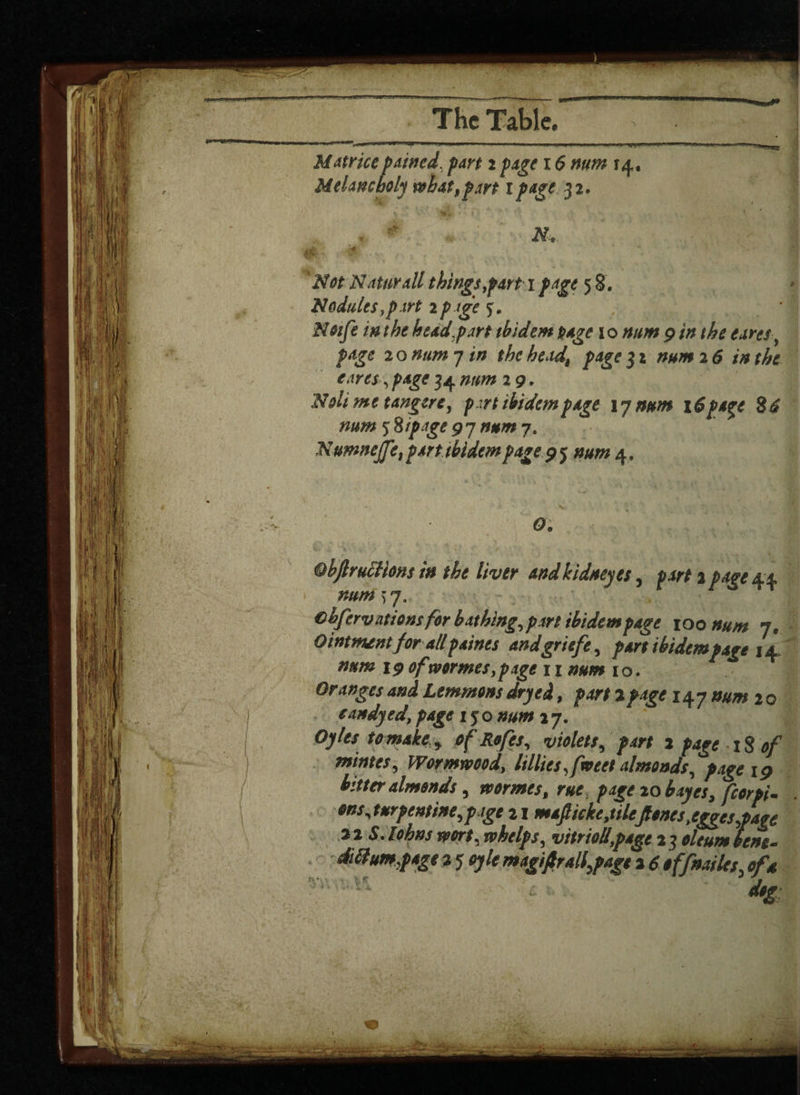 The Table.
Matrice pained, part 2 page 16 num 14.
Melancholy what, part 1 page 32.
N.
Not Naturall things, part 1 page 58.
Nodules, part 2 page 5.
Noise in the head, part ibidem page 10 num 9 in the eares,
page 20 num 7 in the head, page 31 num 26 in the
eares, page 34 num 29.
Noli me tangere, part ibidem page 17 num 16 page 86
num 58 ipage 97 num 7.
Numnesse, part ibidem page 95 num 4.
O.
Obstructions in the liver and kidneyes, part 2 page 44
num 57.
Observations for bathing, part ibidem page 100 num 7.
Ointment for all paines and griefe, part ibidem page 14
num 19 of wormes, page 11 num 10.
Oranges and Lemmons dryed, part 2 page 147 num 20
candyed, page 150 num 27.
Oyles to make, of Roses, violets, part 2 page 18 of
mintes, Wormwood, lillies, sweet almonds, page 19
bitter almonds, wormes, rue, page 20 bayes, scorpi-
ons, turpentine, page 21 masticke, tile stones, egges, page
22 S. Iohns wort, whelps, vitrioll, page 23 oleum bene-
dictum, page 25 oyle magistrall, page 26 of snailes, of a
dog